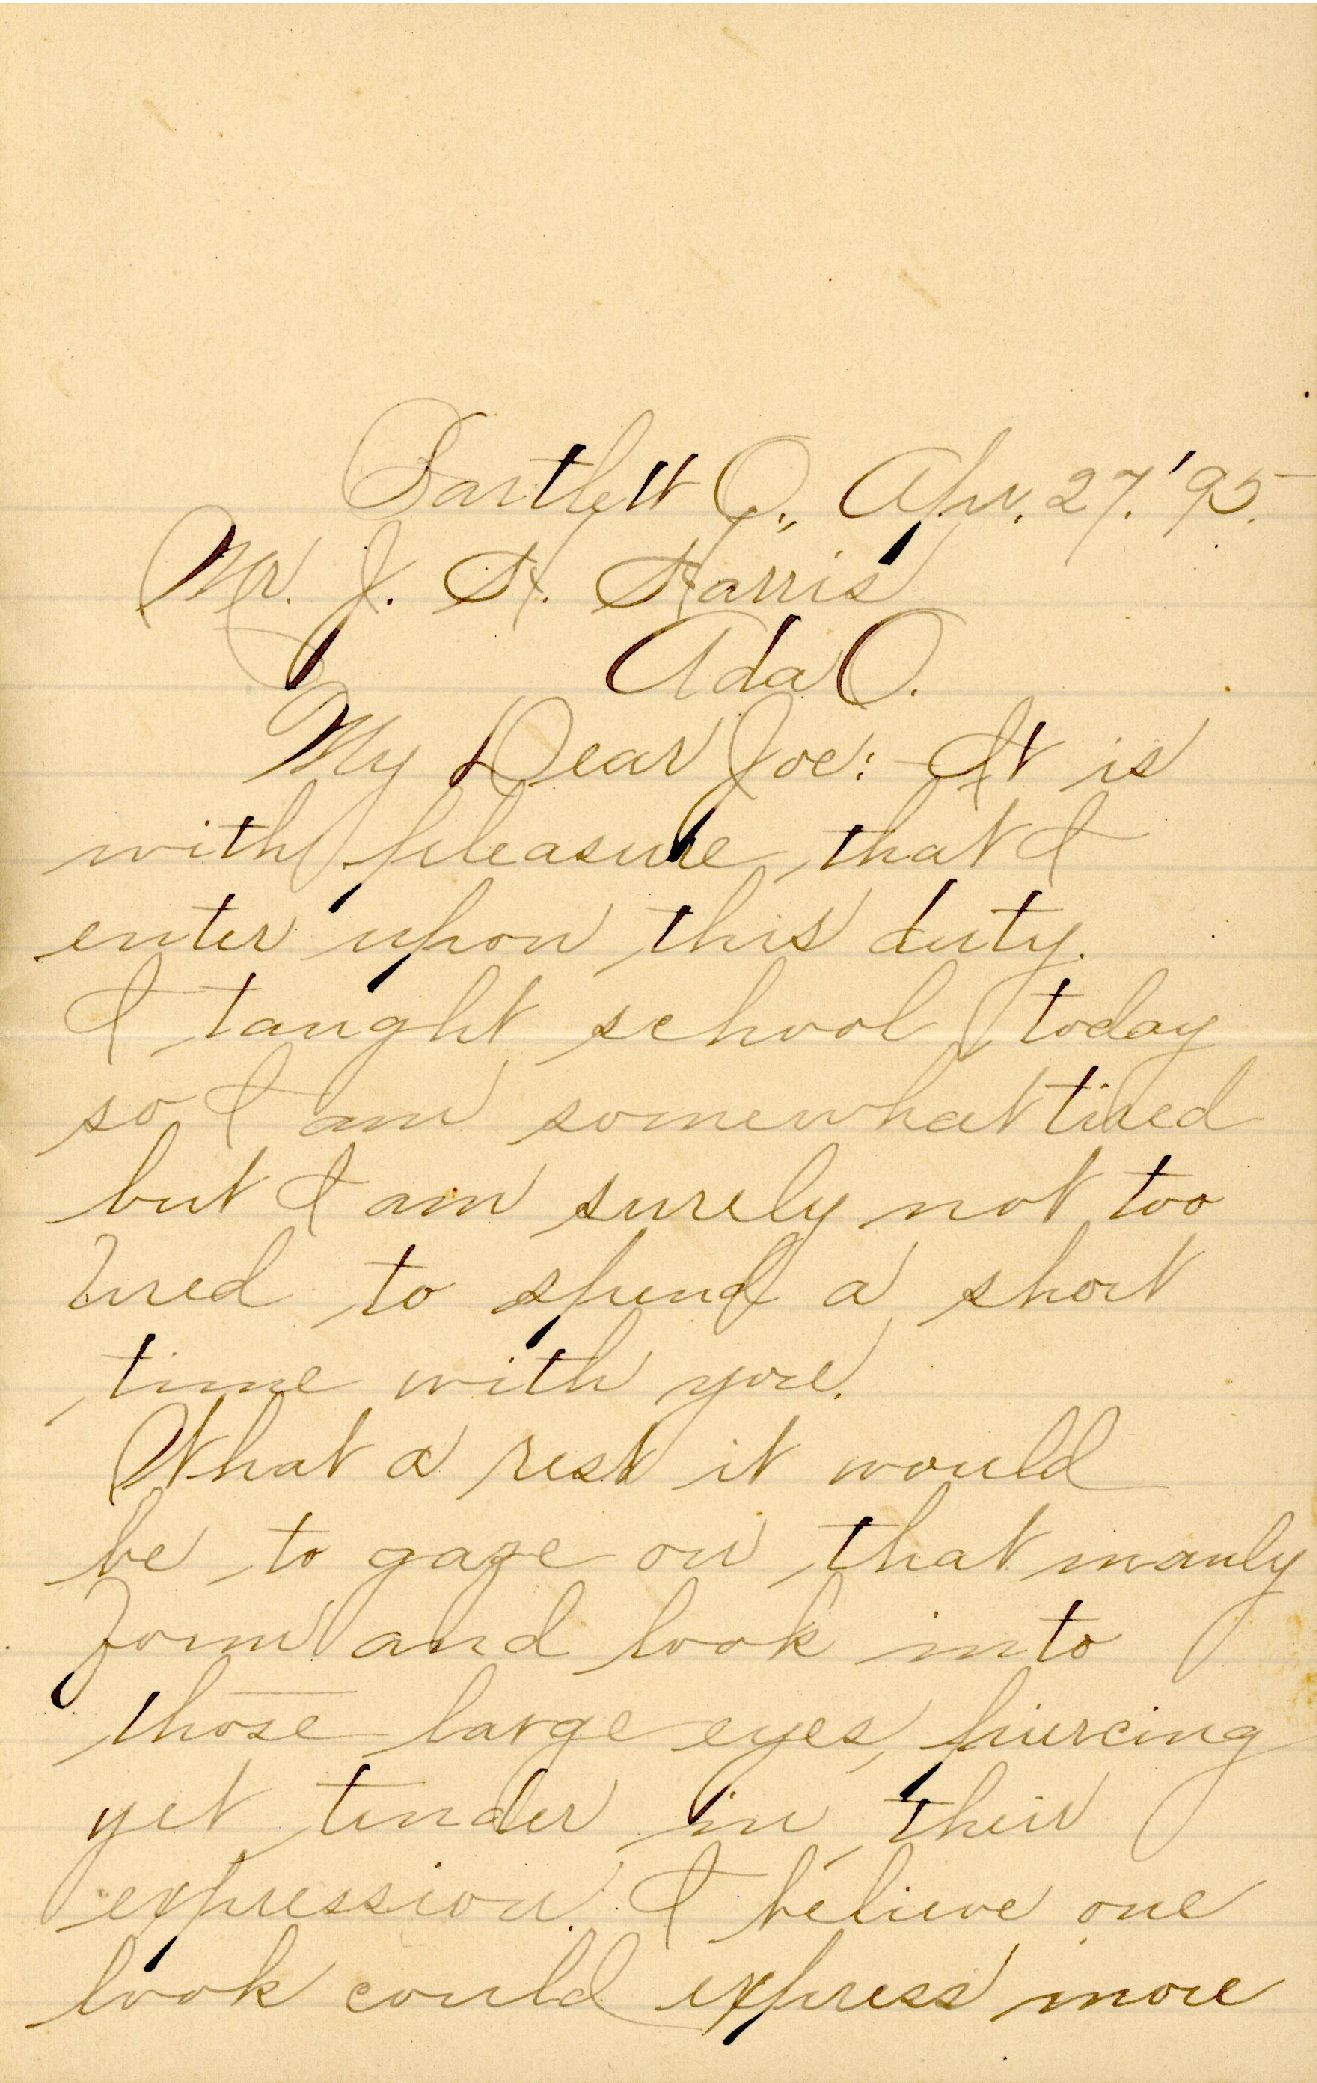 Bartlett O., Apr. 27. '95.
Mr. J. H. Harris
Ada O.
My Dear Joe: It is
with pleasure that I
enter upon this duty.
I taught school today
so I am somewhat tired
but I am surely not too
tired to spend a short
time with you.
What a rest it would
be to gaze on that manly
form and look into
those large eyes, piercing
yet tender in their
expression. I believe one
look could express more